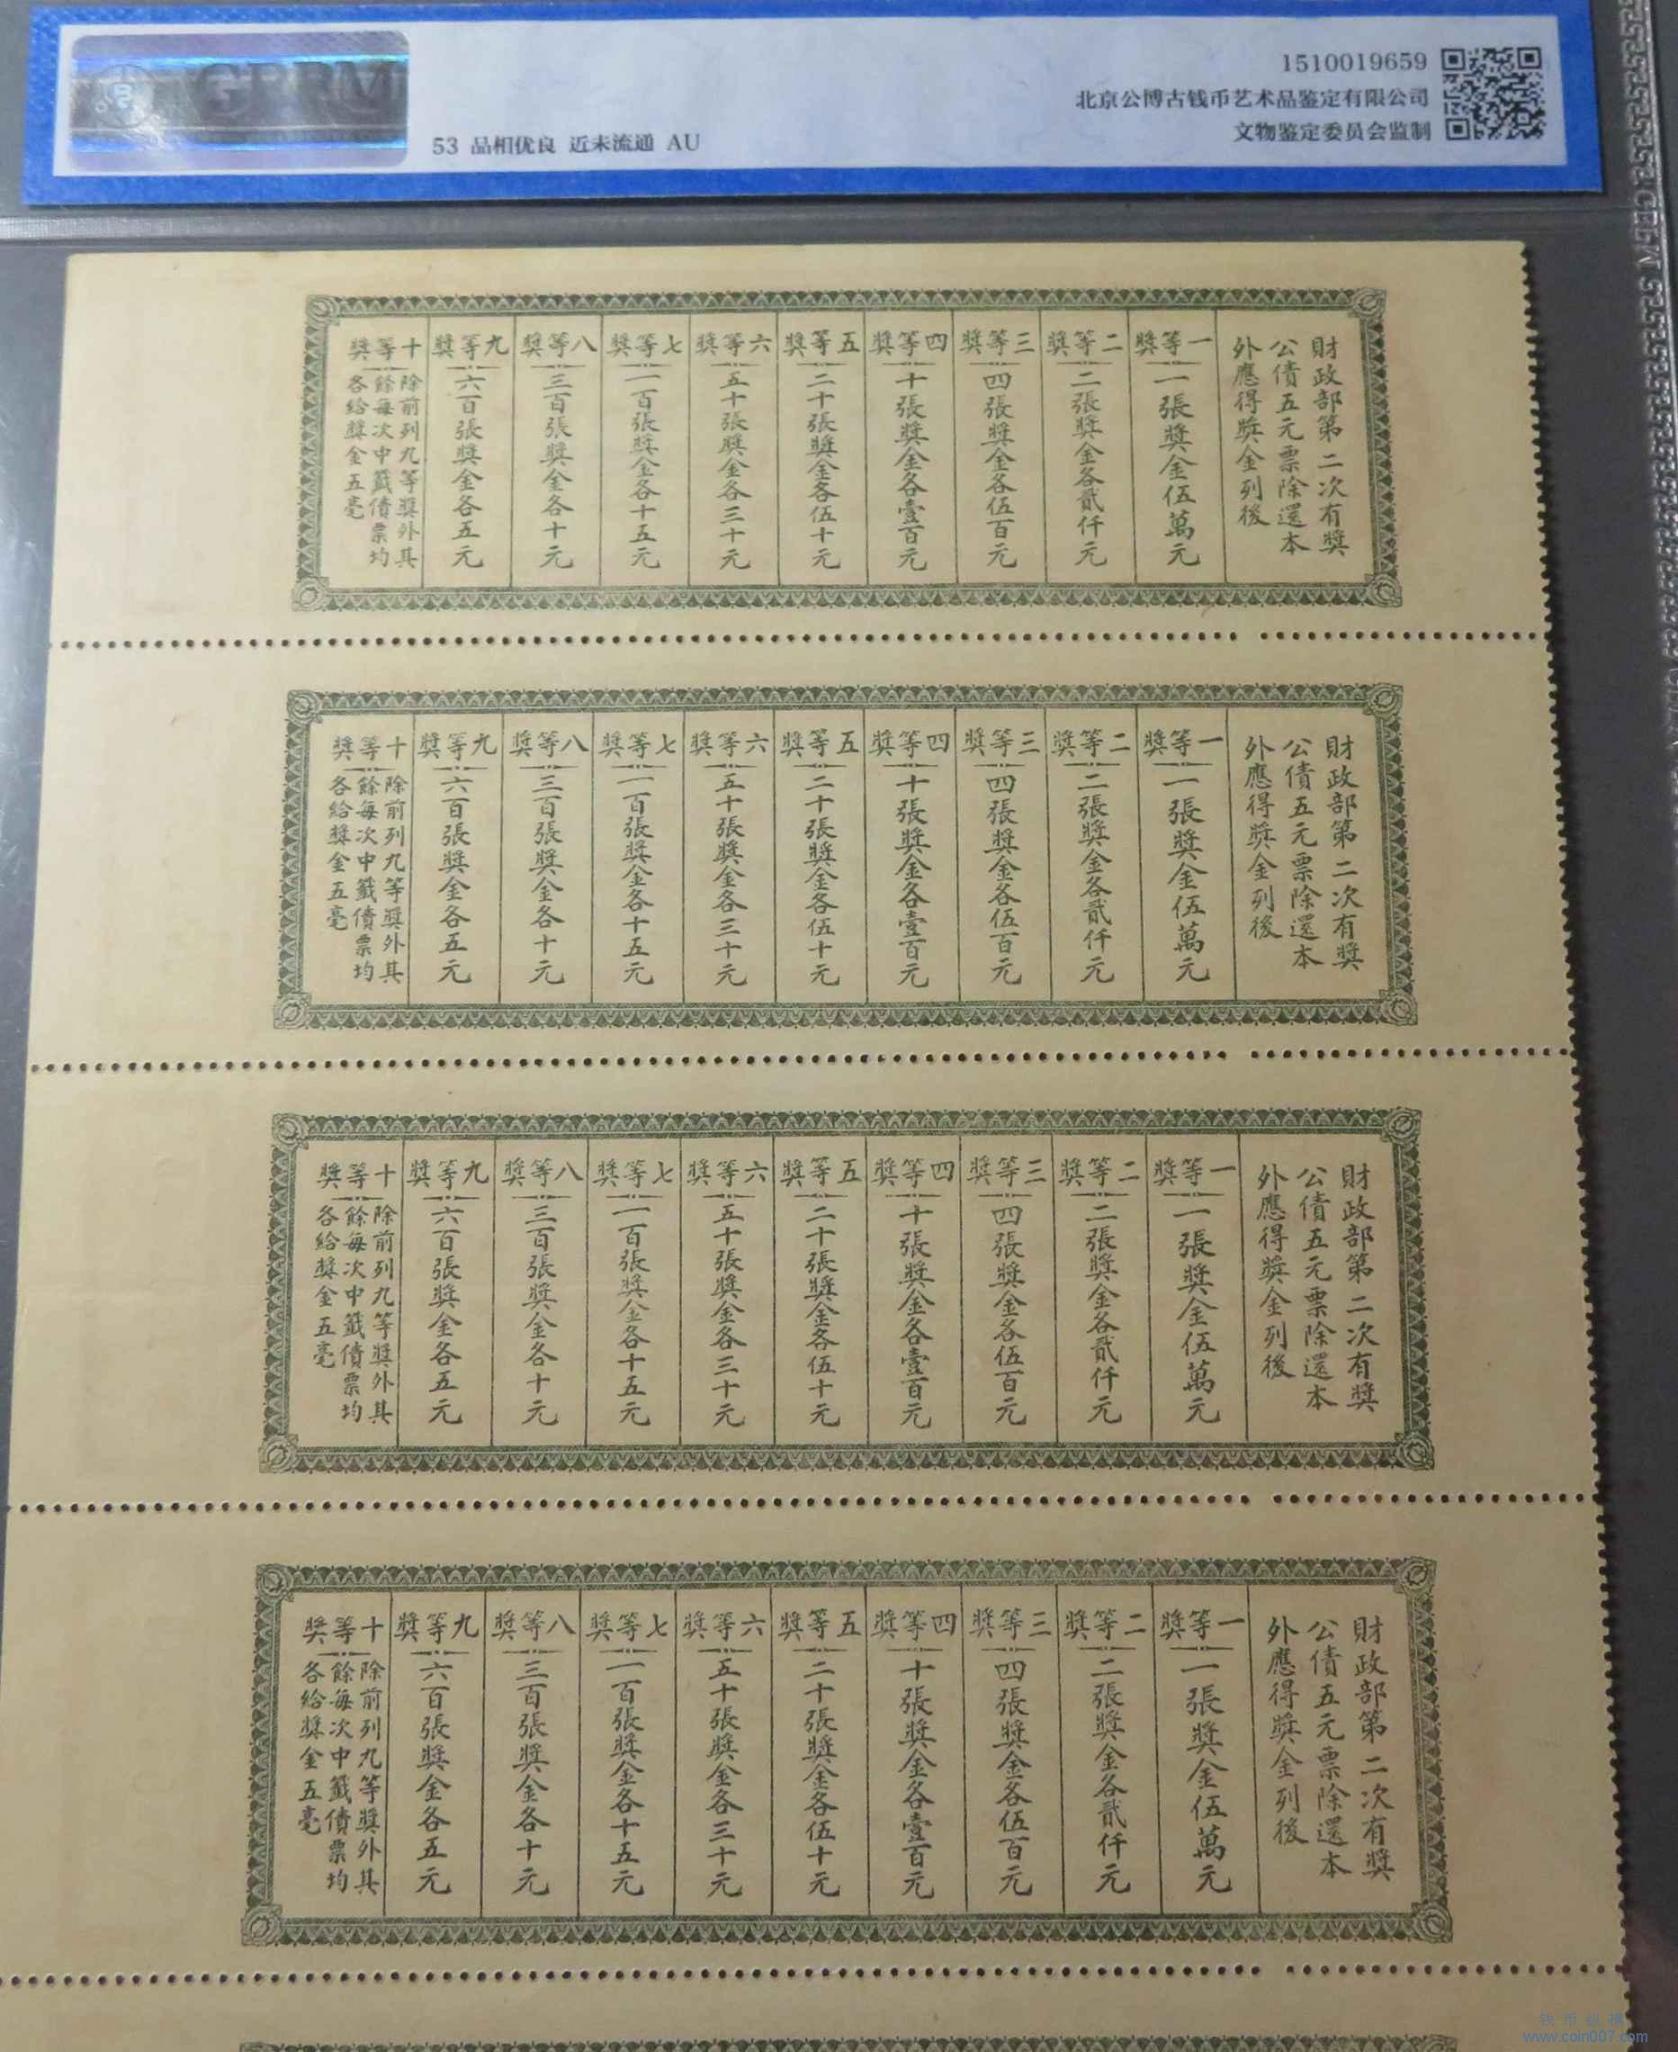 1510019659
北京公博古钱币艺术品鉴定有限公司
文物鉴定委员会监制
53 品相优良 近未流通 AU
財政部第二次有獎
公債五元票除還本
外應得獎金列後
一等獎
一張獎金伍萬元
二等獎
二張獎金各貳仟元
三等獎
四張獎金各伍百元
四等獎
十張獎金各壹百元
五等獎
二十張獎金各伍十元
六等獎
五十張獎金各三十元
七等獎
一百張獎金各十五元
八等獎
三百張獎金各十元
九等獎
六百張獎金各五元
十等獎
除前列九等獎外其
餘每次中籤債票均
各給獎金五毫
財政部第二次有獎
公債五元票除還本
外應得獎金列後
一等獎
一張獎金伍萬元
二等獎
二張獎金各貳仟元
三等獎
四張獎金各伍百元
四等獎
十張獎金各壹百元
五等獎
二十張獎金各伍十元
六等獎
五十張獎金各三十元
七等獎
一百張獎金各十五元
八等獎
三百張獎金各十元
九等獎
六百張獎金各五元
十等獎
除前列九等獎外其
餘每次中籤債票均
各給獎金五毫
財政部第二次有獎
公債五元票除還本
外應得獎金列後
一等獎
一張獎金伍萬元
二等獎
二張獎金各貳仟元
三等獎
四張獎金各伍百元
四等獎
十張獎金各壹百元
五等獎
二十張獎金各伍十元
六等獎
五十張獎金各三十元
七等獎
一百張獎金各十五元
八等獎
三百張獎金各十元
九等獎
六百張獎金各五元
十等獎
除前列九等獎外其
餘每次中籤債票均
各給獎金五毫
財政部第二次有獎
公債五元票除還本
外應得獎金列後
一等獎
一張獎金伍萬元
二等獎
二張獎金各貳仟元
三等獎
四張獎金各伍百元
四等獎
十張獎金各壹百元
五等獎
二十張獎金各伍十元
六等獎
五十張獎金各三十元
七等獎
一百張獎金各十五元
八等獎
三百張獎金各十元
九等獎
六百張獎金各五元
十等獎
除前列九等獎外其
餘每次中籤債票均
各給獎金五毫
www.coin007.com